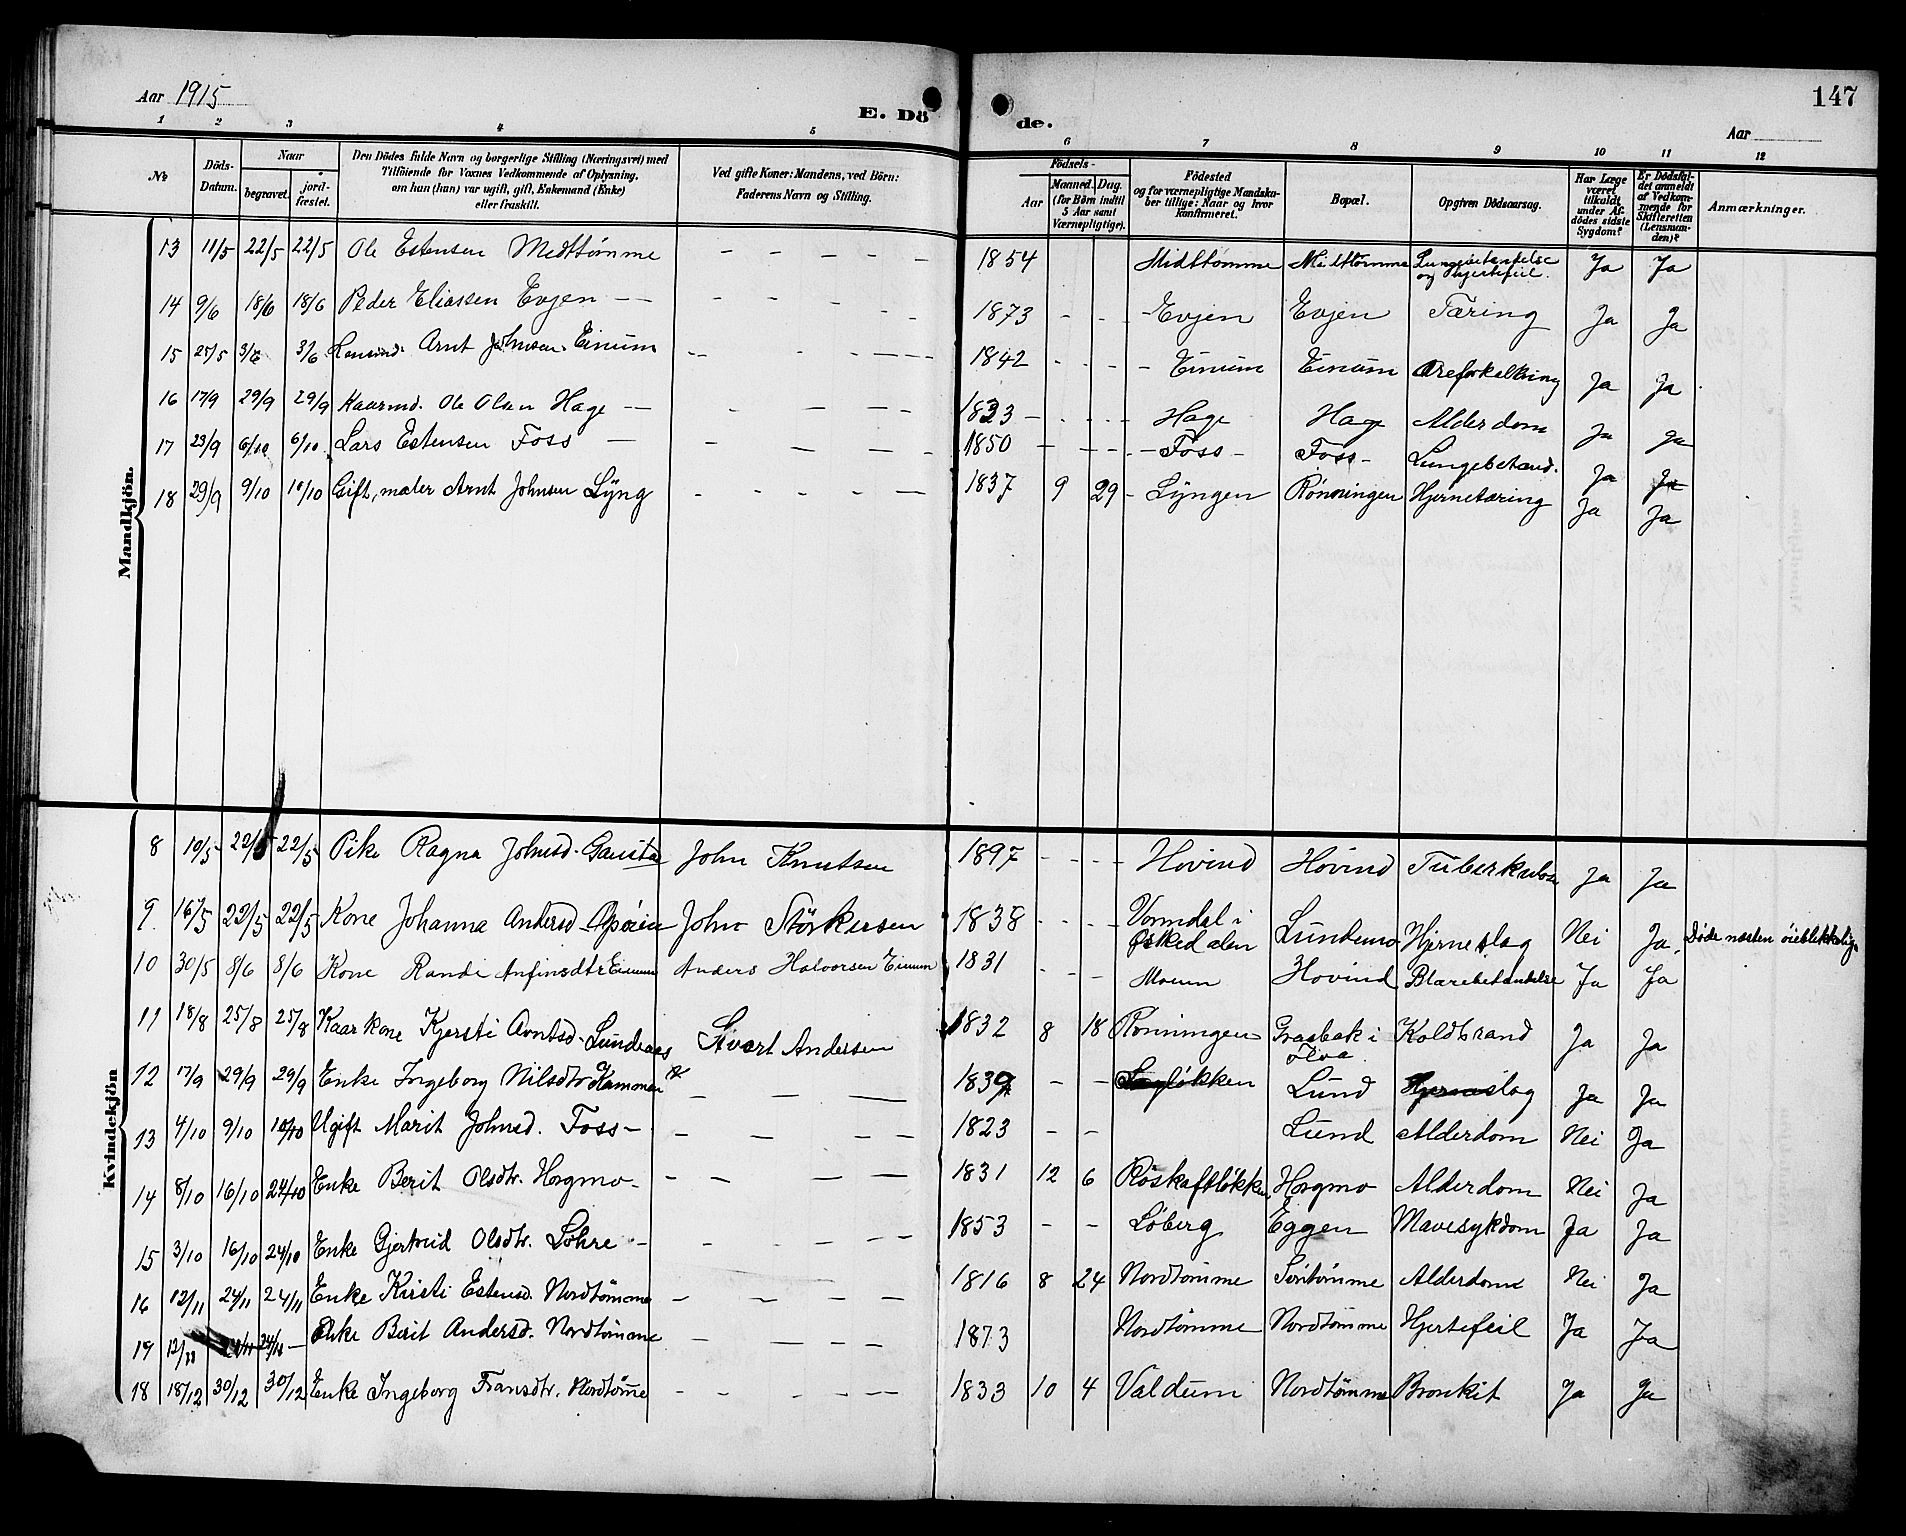 Aar 1915
E. Dö
de.
147
Aar
1 2 3 4 5 6 7 8 9 10 11 12
№
Döds-Datum.
Naar
begravet.
jord-fæstet.
Den Dödes fulde Navn og borgerlige Stilling (Næringsvei) med
Tilföiende for Voxnes Vedkommende af Oplysning,
om han (hun) var ugift, gift, Enkemand (Enke)
eller fraskilt.
Ved gifte Koner: Mandens, ved Börn:
Faderens Navn og Stilling.
Födsels-
Aar
Maaned. Dag.
(for Börn indtil
5 Aar samt
Værnepligtige).
Födested
og for værnepligtige Mandska-
ber tillige: Naar og hvor
konfirmeret.
Bopæl.
Opgiven Dödsaarsag.
Har Læge
været
tilkaldt
under Af-
dödes sidste
Sygdom?
Er Dödsfal-
det anmeldt
af Vedkom-
mende for
Skifteretten
(Lensman-
den)?
Anmærkninger.
Mandkjön.
13 11/5 22/5 22/5 Ole Estensen Medttømme – – – – – 1854 Midttømme Midttømme Lungebetændelse og Hjertefeil. Ja Ja
14 9/6 18/6 18/6 Peder Eliassen Evjen – – – – – 1873 – – – Evjen Evjen Tæring Ja Ja
15 25/5 3/6 3/6 Arnt Johnsen Einum – – – – – 1842 – – – Einum Einum Areforkalkning Ja Ja
16 17/9 29/9 29/9 Kaarmd. Ole Olsen Hage – – – – 1833 – – – Hage Hage Alderdom Ja Ja
17 23/9 6/10 6/10 Lars Estensen Foss – – – – 1850 – – – Foss – Foss – Lungebetænd. Ja Ja
18 29/9 9/10 10/10 Gift, maler Arnt Johnsen Lÿng – – – – – 1837 9 29 – Lÿngen Rønningen Hjernetæring Ja Ja
Kvindekjön
8 10/5 22/5 22/5 Pike Ragna Johnsd. Gausta John Knutsen 1897 – – – – Hovind Hovind Tuberkulose Ja Ja
9. 16/5 22/5 22/5 Kone Johanna Andersd. John Störkersen 1838 – – – – Vormdal i Lundemo Hjerneslag Nei Ja. Døde næsten øieblikkelig.
10 30/5 8/6 8/6 Kone Randi Anfinsdtr Einum Anders Halvorsen Einum 1831 – – – Moum Hovind Blærebetændelse Ja Ja
11 18/8 25/8 25/8 Kaarkone Kjersti Arntsd. Lundraas Sivert Andersen 1832 8 18 Rønningen Græsbak i Ølva Koldbrand Ja Ja
12 17/9 29/9 29/9 Enke Ingeborg Nilsdtr – – – – 1839 – – Lund Hjerneslag Ja Ja
13 4/10 9/10 10/10 Ugift Marit Johnsd. Foss – – – – – 1823 – – Lund Alderdom Nei Ja
14 8/10 16/10 24/10 Enke Berit Olsdtr. Horgmo – – – – – 1831 12 6 Røskaftløkken Horgmo Alderdom Nei Ja
15 3/10 16/10 24/10 Enke Gjertrud Olsdtr. Løhre – – – – – 1853 – – Løberg Eggen Mavesykdom Ja Ja
16 12/11 24/11 24/11 Enke Kirsti Estensd. Nordtømme – – – – – 1816 8 24 Nordtømme Sørtømme Alderdom Nei Ja
17 12/11 24/11 24/11 – Enke Berit Andersd. Nordtømme – – – – 1873 Nordtømme Nordtømme Hjertefeil Ja Ja
18 18/12 30/12 30/12 Enke Ingeborg Fransdtr. Nordtømme – – – – – 1833 10 4 Valdum Nordtømme Bronkit Ja Ja